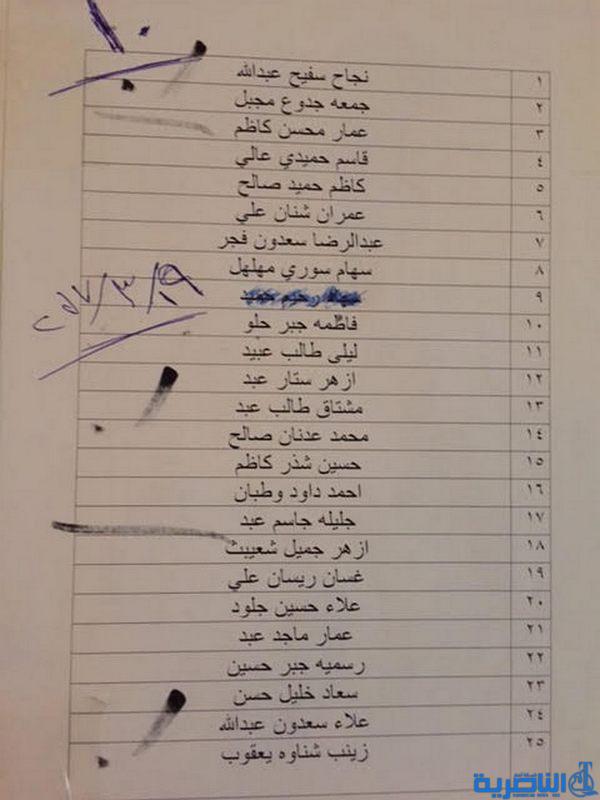 ١٠
١ نجاح سفيح عبدالله
٢ جمعه جدوع مجبل
٣ عمار محسن كاظم
٤ قاسم حميدي عالي
٥ كاظم حميد صالح
٦ عمران شنان علي
٧ عبدالرضا سعدون فجر
٨ سهام سوري مهلهل
٩
٢٠١٧/٣/١٩
١٠ فاطمه جبر حلو
١١ ليلى طالب عبيد
١٢ ازهر ستار عبد
١٣ مشتاق طالب عبد
١٤ محمد عدنان صالح
١٥ حسين شذر كاظم
١٦ احمد داود وطبان
١٧ جليله جاسم عبد
١٨ ازهر جميل شعيبث
١٩ غسان ريسان علي
٢٠ علاء حسين جلود
٢١ عمار ماجد عبد
٢٢ رسميه جبر حسين
٢٣ سعاد خليل حسن
٢٤ علاء سعدون عبدالله
٢٥ زينب شناوه يعقوب
الناصرية